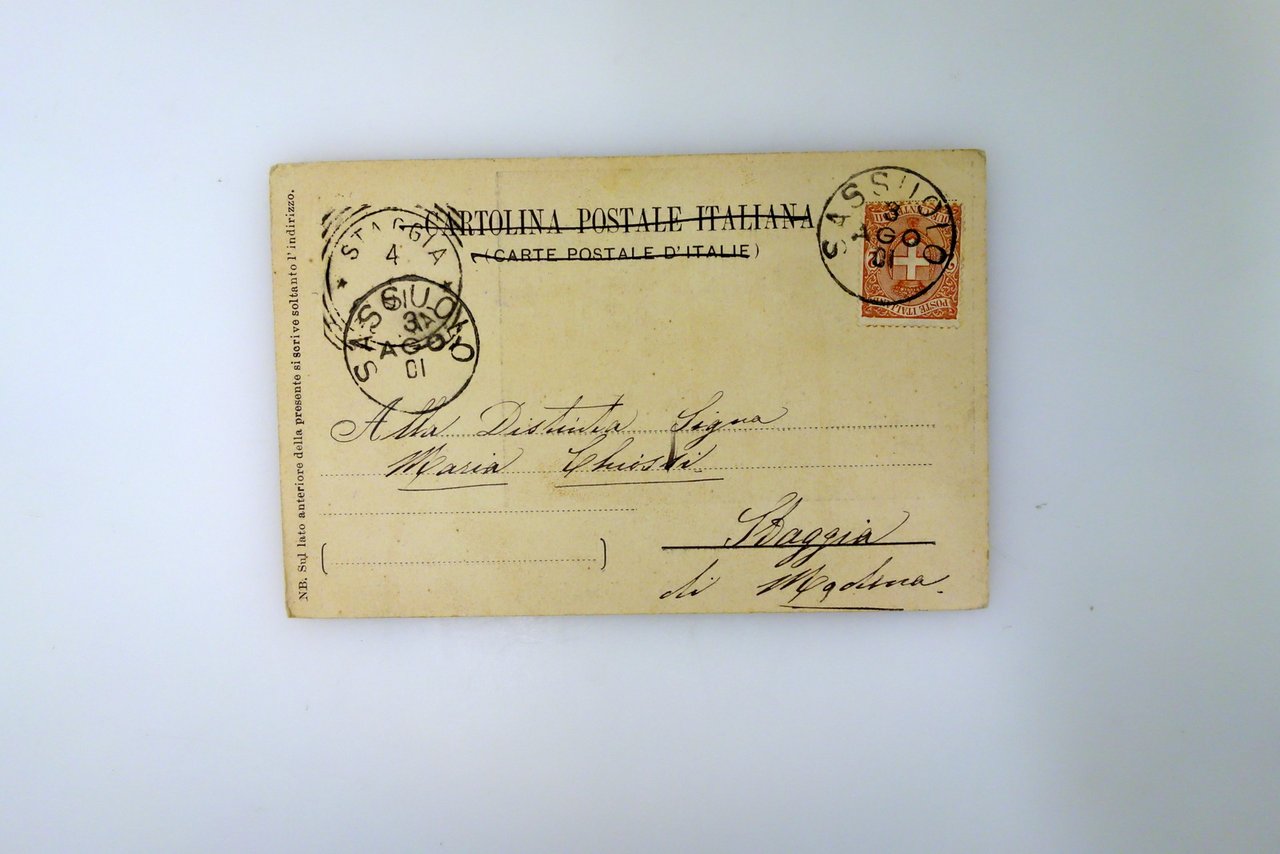 CARTOLINA POSTALE ITALIANA
(CARTE POSTALE D'ITALIE)
STAGGIA
4
SASSUOLO
3
AGO
01
SASSUOLO
3
AGO
01
POSTE ITALIANE
Alla Distinta Signa
Maria Chiossi
Staggia
di Modena.
NB. Sul lato anteriore della presente si scrive soltanto l'indirizzo.